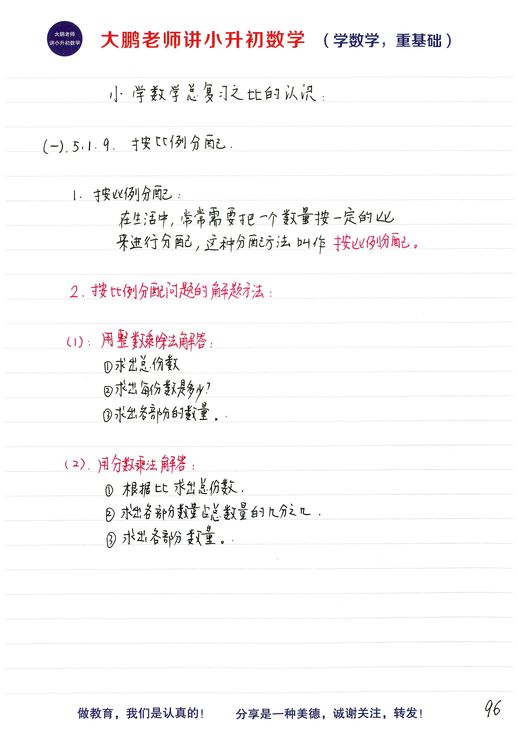 大鹏老师
讲小升初数学
大鹏老师讲小升初数学 （学数学，重基础）
小学数学总复习之比的认识：
(一).5.1.9. 按比例分配.
1. 按比例分配：
在生活中，常常需要把一个数量按一定的比
来进行分配，这种分配方法叫作 按比例分配。
2. 按比例分配问题的解题方法：
(1)：用整数乘除法解答：
①求出总份数
②求出每份数是多少？
③求出各部份的数量。
(2). 用分数乘法解答：
① 根据比求出总份数.
② 求出各部分数量占总数量的几分之几.
③ 求出各部分数量。
做教育，我们是认真的！ 分享是一种美德，诚谢关注，转发！
96